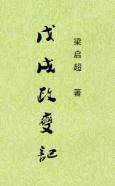 戊戌政變記
梁启超 著